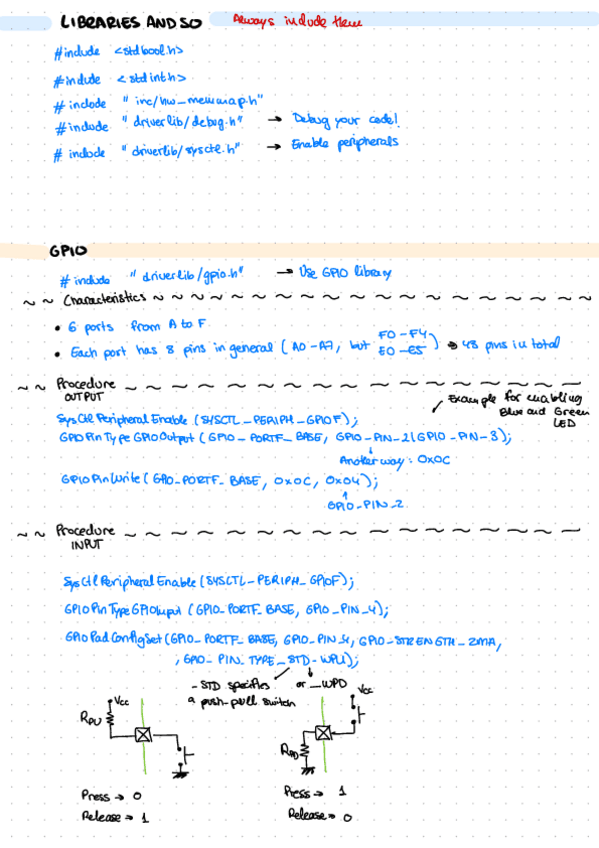 LIBRARIES AND SO Always include them
#include <stdbool.h>
#include <stdint.h>
#include "inc/hw_memmap.h"
#include "driverlib/debug.h" → Debug your code!
#include "driverlib/sysctl.h" → Enable peripherals
GPIO
#include "driverlib/gpio.h" → Use GPIO library
~ ~ Characteristics ~ ~ ~ ~ ~ ~ ~ ~ ~ ~ ~ ~ ~ ~ ~ ~ ~ ~ ~
• 6 ports from A to F
• Each port has 8 pins in general (A0-A7, but F0-F4, E0-E5) → 48 pins in total
~ ~ Procedure OUTPUT ~ ~ ~ ~ ~ ~ ~ ~ ~ ~ ~ ~ ~ ~ ~ ~ ~ ~ ~
Example for enabling
Blue and Green
LED
SysCtlPeripheralEnable (SYSCTL_PERIPH_GPIOF);
GPIOPinTypeGPIOOutput (GPIO_PORTF_BASE, GPIO_PIN_2|GPIO_PIN_3);
Another way: 0x0C
GPIOPinWrite (GPIO_PORTF_BASE, 0x0C, 0x04);
GPIO_PIN_2
~ ~ Procedure INPUT ~ ~ ~ ~ ~ ~ ~ ~ ~ ~ ~ ~ ~ ~ ~ ~ ~ ~ ~
SysCtlPeripheralEnable (SYSCTL_PERIPH_GPIOF);
GPIOPinTypeGPIOInput (GPIO_PORTF_BASE, GPIO_PIN_4);
GPIOPadConfigSet (GPIO_PORTF_BASE, GPIO_PIN_4, GPIO_STRENGTH_2MA,
, GPIO_PIN_TYPE_STD_WPU);
_STD specifies or _WPD
a push-pull switch
Vcc Vcc
RPU
RPD
Press → 0 Press → 1
Release → 1 Release → 0